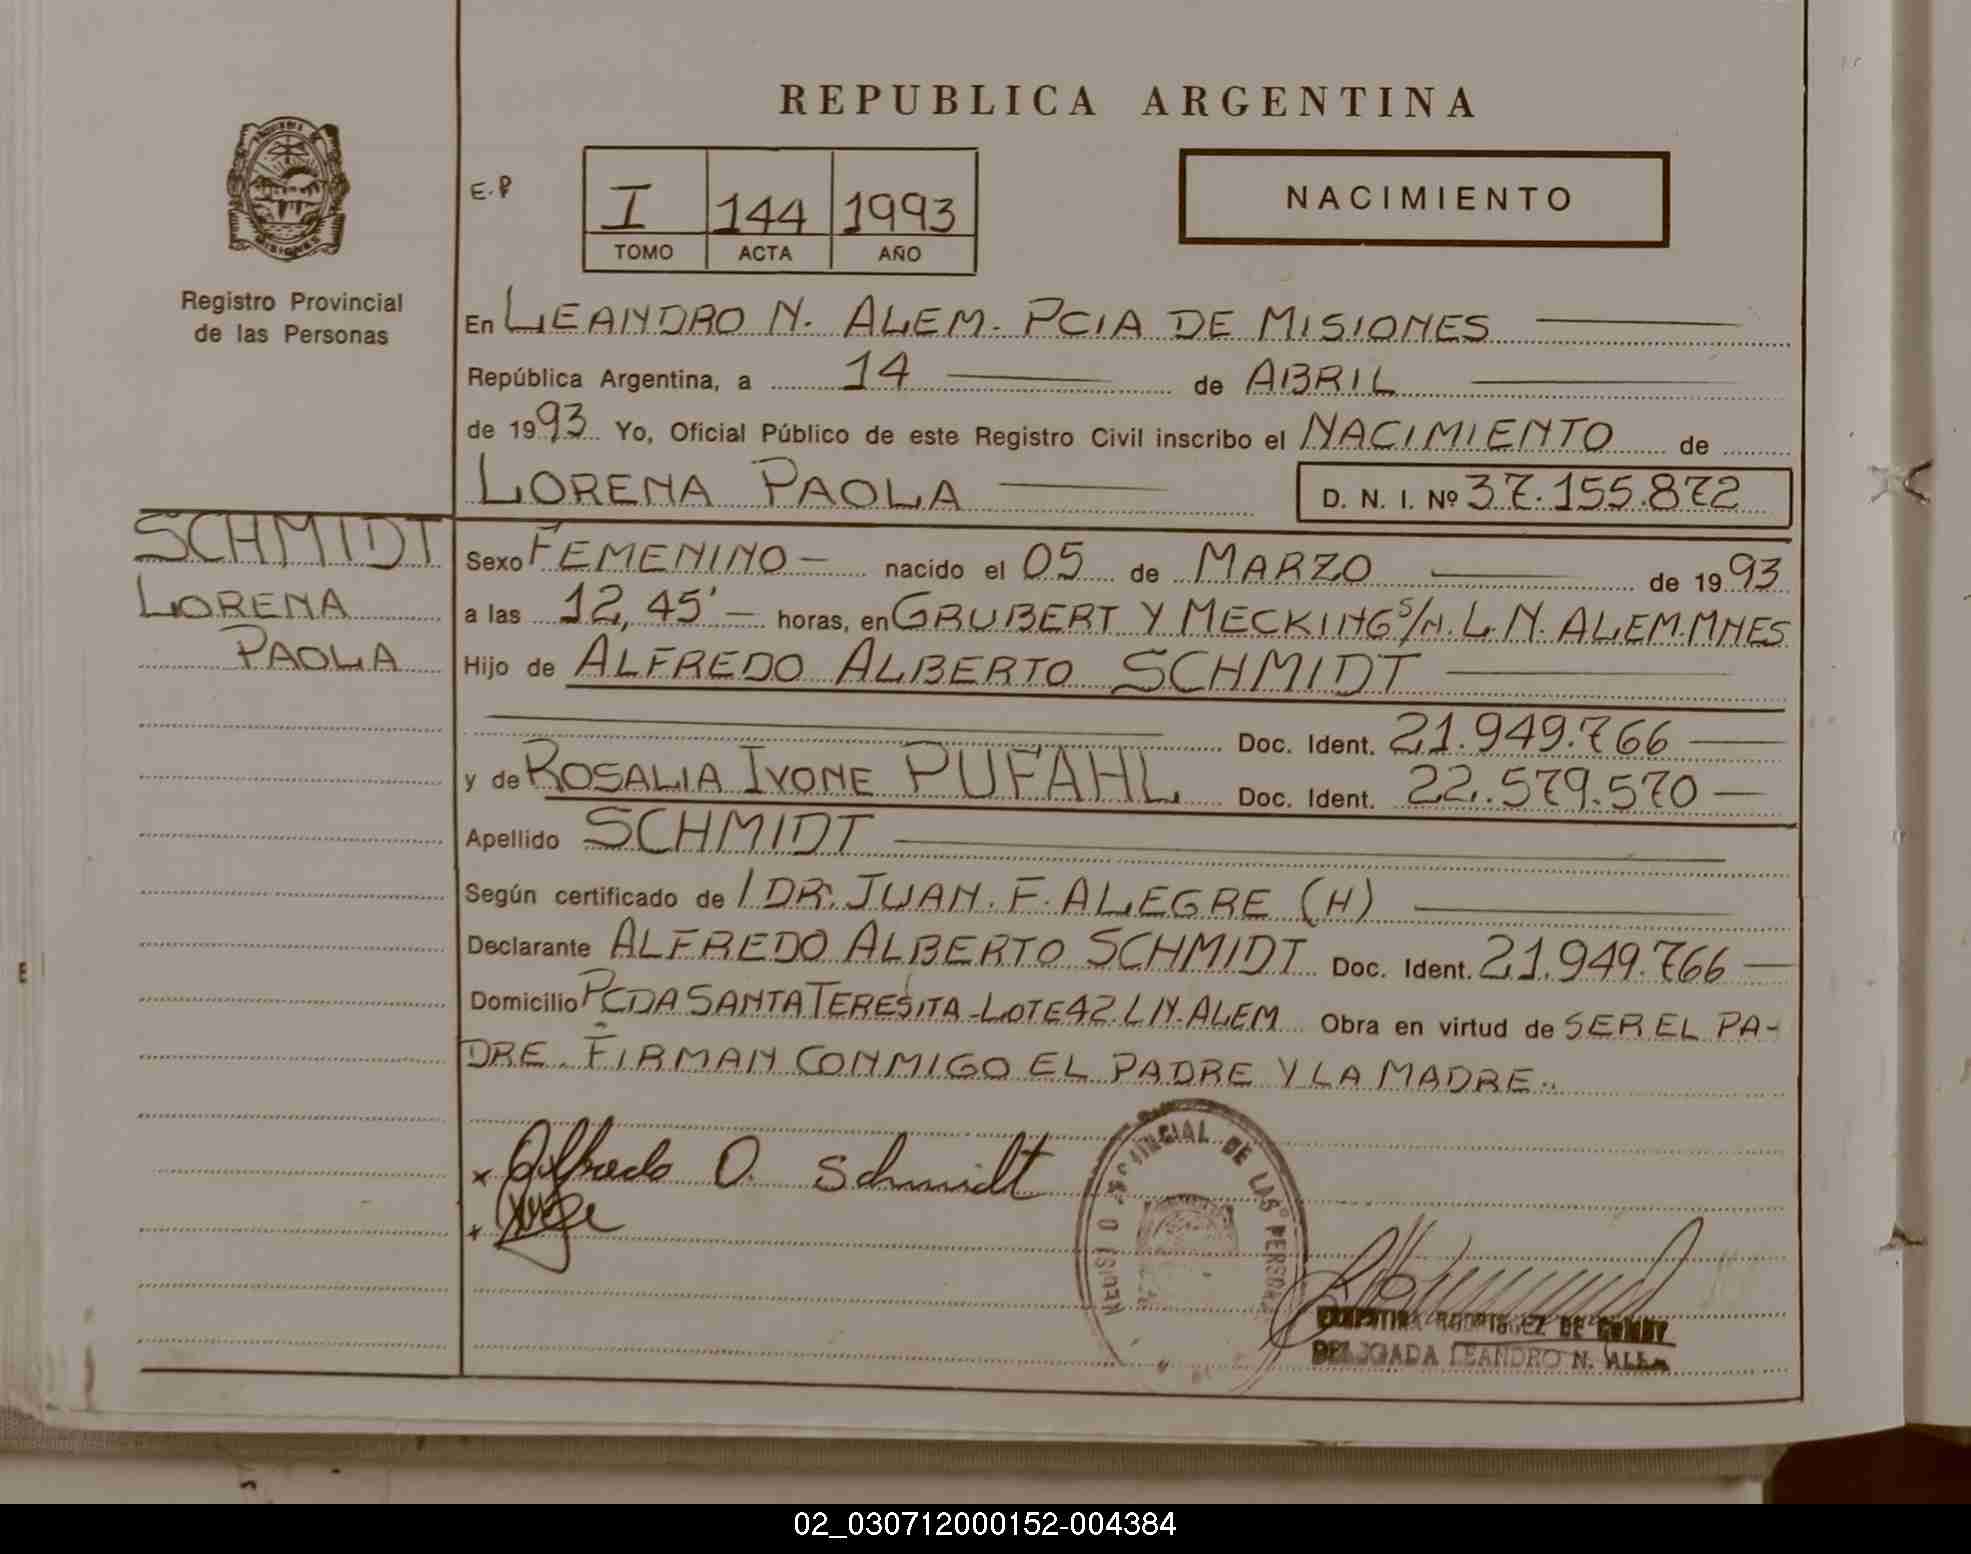 REPUBLICA ARGENTINA
MISIONES
Registro Provincial
de las Personas
E.P
I 144 1993
TOMO ACTA AÑO
NACIMIENTO
En LEANDRO N. ALEM. PCIA DE MISIONES
República Argentina, a 14 de ABRIL
de 1993. Yo, Oficial Público de este Registro Civil inscribo el NACIMIENTO de
LORENA PAOLA D. N. I. Nº 37.155.872
SCHMIDT
LORENA
PAOLA
Sexo FEMENINO nacido el 05 de MARZO de 1993
a las 12,45' horas, en GRUBERT Y MECKING S/N. L.N. ALEM. MNES
Hijo de ALFREDO ALBERTO SCHMIDT
Doc. Ident. 21.949.766
y de ROSALIA IVONE PUFAHL Doc. Ident. 22.579.570
Apellido SCHMIDT
Según certificado de / DR. JUAN. F. ALEGRE (H)
Declarante ALFREDO ALBERTO SCHMIDT Doc. Ident. 21.949.766
Domicilio PCDA SANTA TERESITA-LOTE 42. L N. ALEM Obra en virtud de SER EL PA-
DRE. FIRMAN CONMIGO EL PADRE Y LA MADRE..
x Alfredo A. Schmidt
x
DE LAS PERSONAS
RODRIGUEZ DE
DELEGADA LEANDRO N. ALEM
02_030712000152-004384